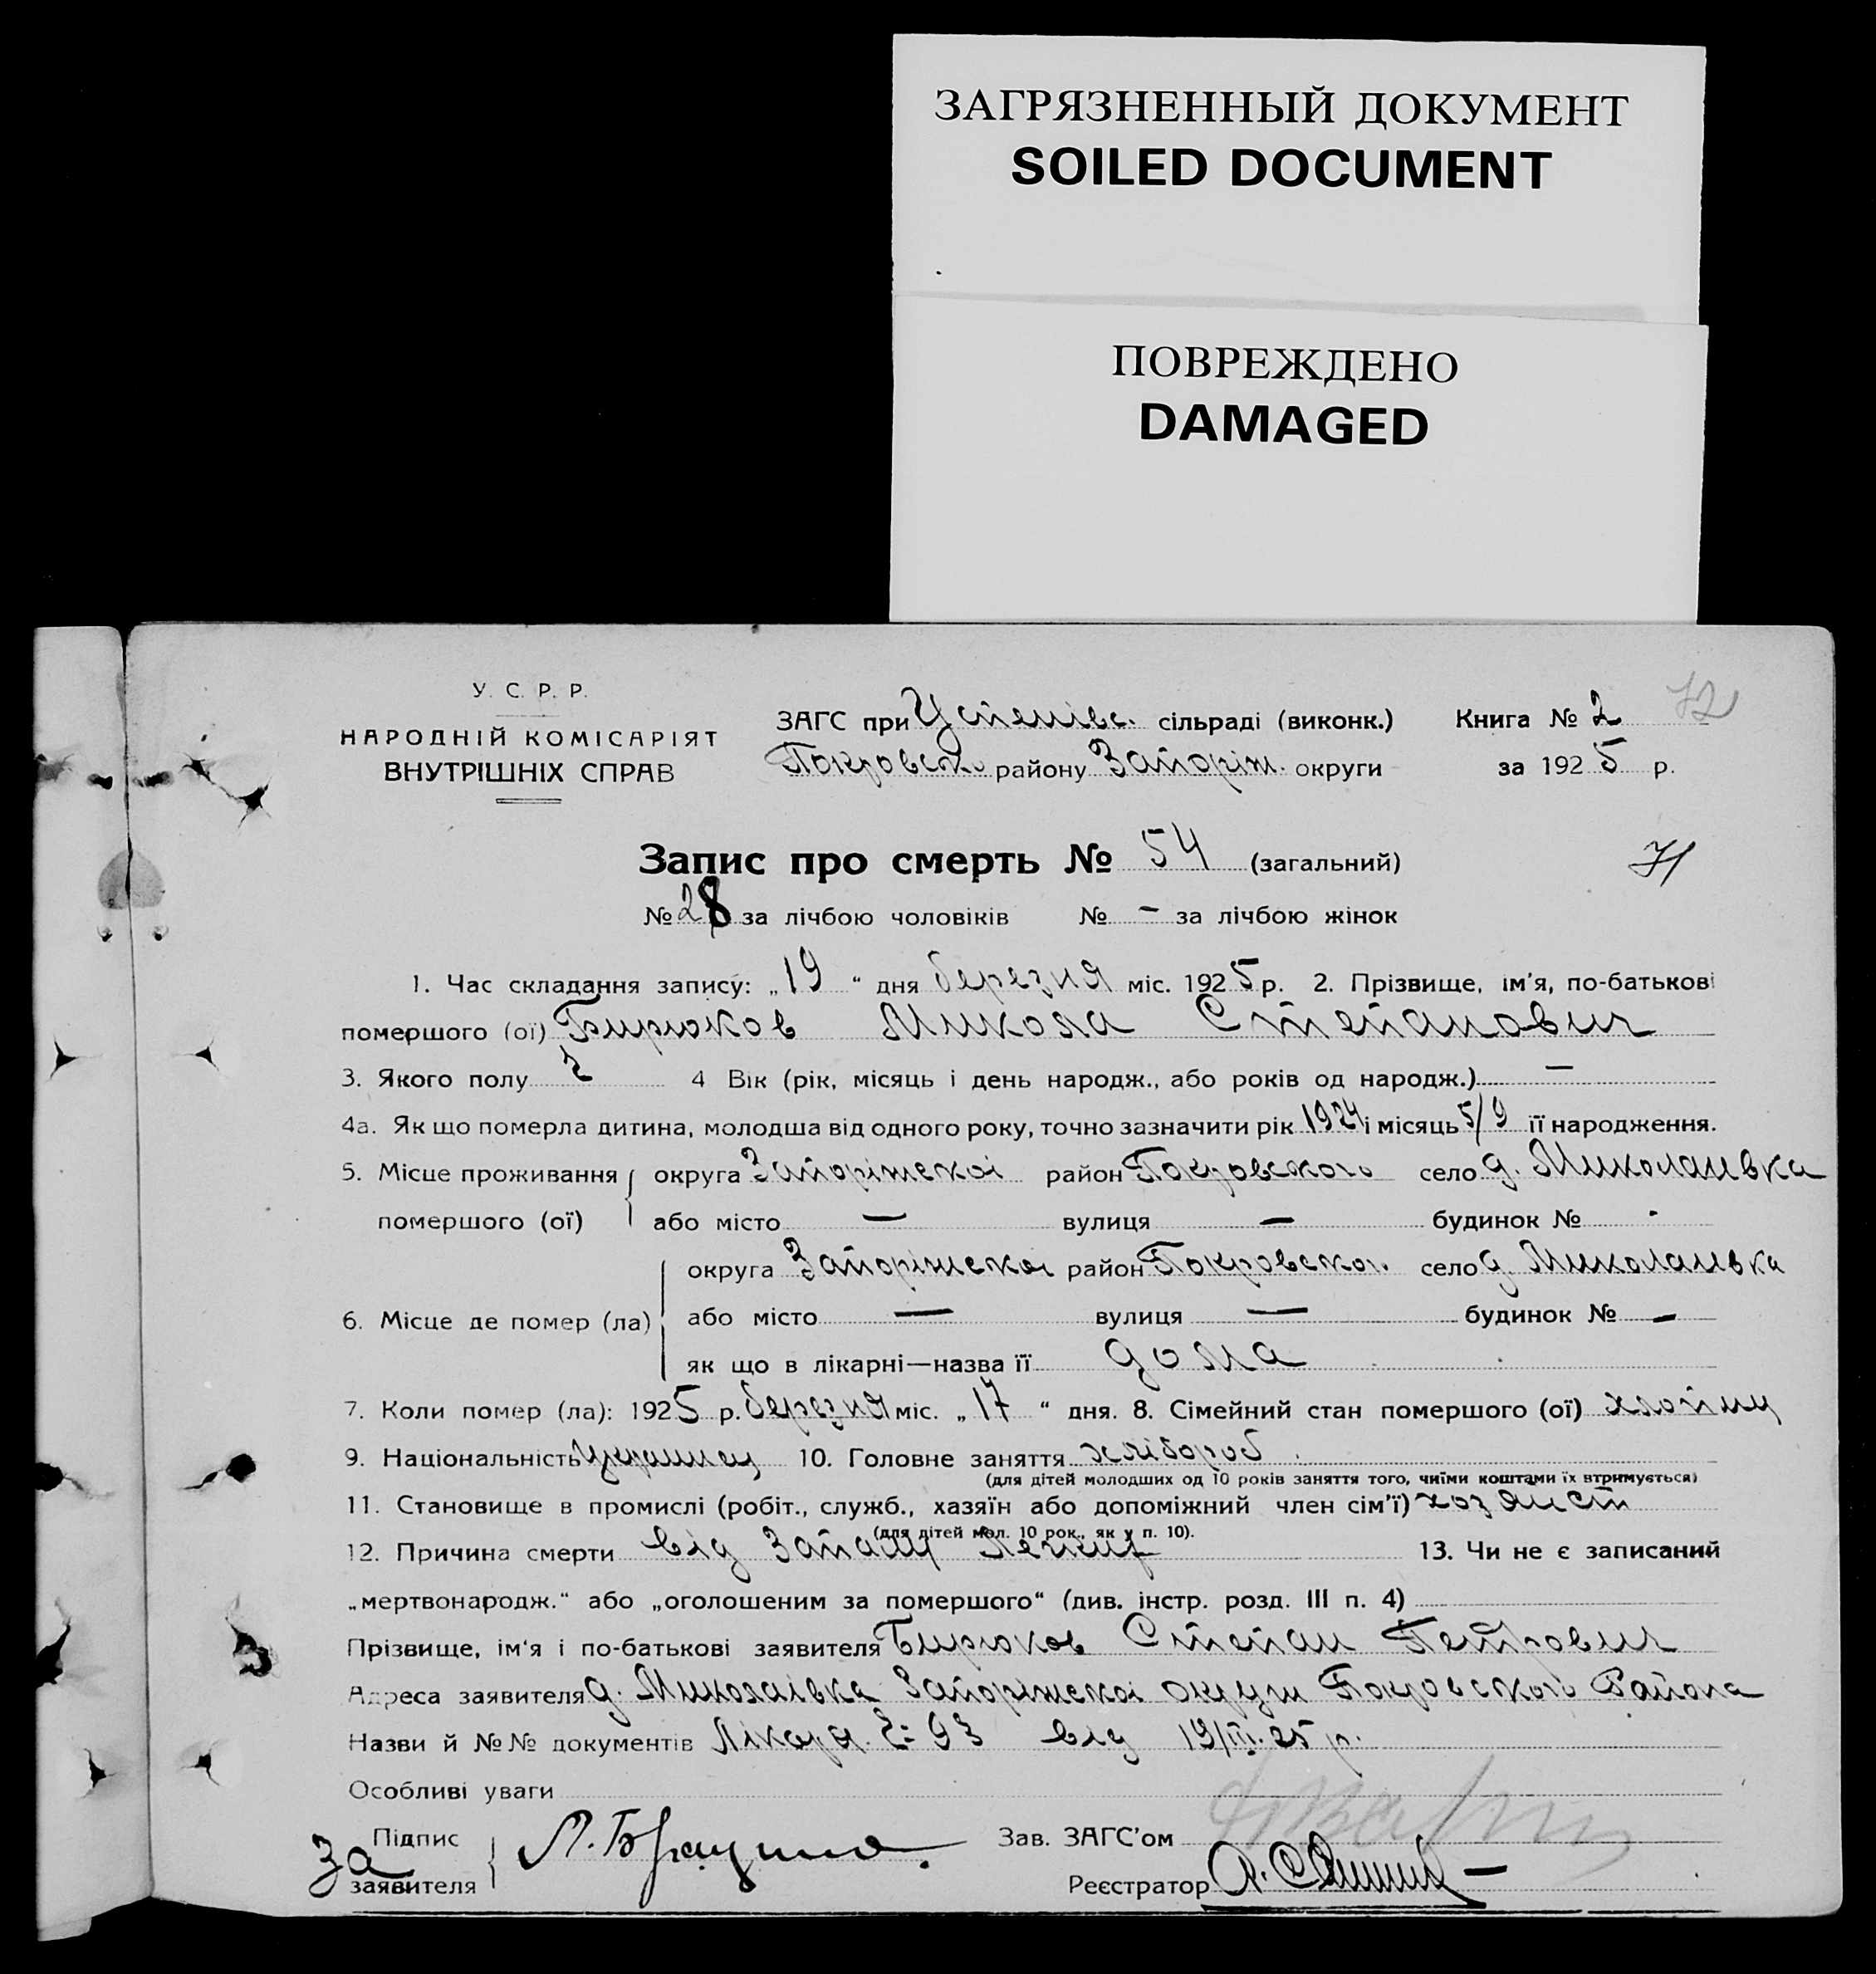 ЗАГРЯЗНЕННЫЙ ДОКУМЕНТ
SOILED DOCUMENT
ПОВРЕЖДЕНО
DAMAGED
У. С. Р. Р.
НАРОДНІЙ КОМІСАРІЯТ
ВНУТРІШНІХ СПРАВ
ЗАГС при Успенівс. сільраді (виконк.)
Покровськ. району Запоріж. округи
Книга № 2 72
за 1925 р.
Запис про смерть № 54 (загальний)
71
№ 28 за лічбою чоловіків № – за лічбою жінок
1. Час складання запису: „19“ дня березня міс. 1925 р. 2. Прізвище, ім'я, по-батькові
помершого (ої) Бирюков Микола Степанович
3. Якого полу ч 4 Вік (рік, місяць і день народж., або років од народж.) —
4а. Як що померла дитина, молодша від одного року, точно зазначити рік 1924 і місяць 5/9 її народження.
5. Місце проживання помершого (ої)
округа Запоріжскоі район Покровского село д. Миколаивка
або місто — вулиця — будинок № -
6. Місце де помер (ла)
округа Запоріжскоі район Покровског. село д. Миколаивка
або місто — вулиця — будинок № –
як що в лікарні—назва її дома
7. Коли помер (ла): 1925 р. березня міс. „17“ дня. 8. Сімейний стан помершого (ої)
9. Національність Украинец 10. Головне заняття хлібороб
(для дітей молодших од 10 років заняття того, чиїми коштами їх втримується)
11. Становище в промислі (робіт., служб., хазяїн або допоміжний член сім'ї)
(для дітей мол. 10 рок., як у п. 10).
12. Причина смерти від Запалу Легких 13. Чи не є записаний
„мертвонародж.“ або „оголошеним за помершого“ (див. інстр. розд. III п. 4)
Прізвище, ім'я і по-батькові заявителя Бирюков Степан Петрович
Адреса заявителя д. Миколаівка Запоріжскоі округи Покровского Района
Назви й №№ документів Лікаря 93 від 19/III-25 р.
Особливі уваги
За Підпис заявителя
Зав. ЗАГС'ом
Реєстратор